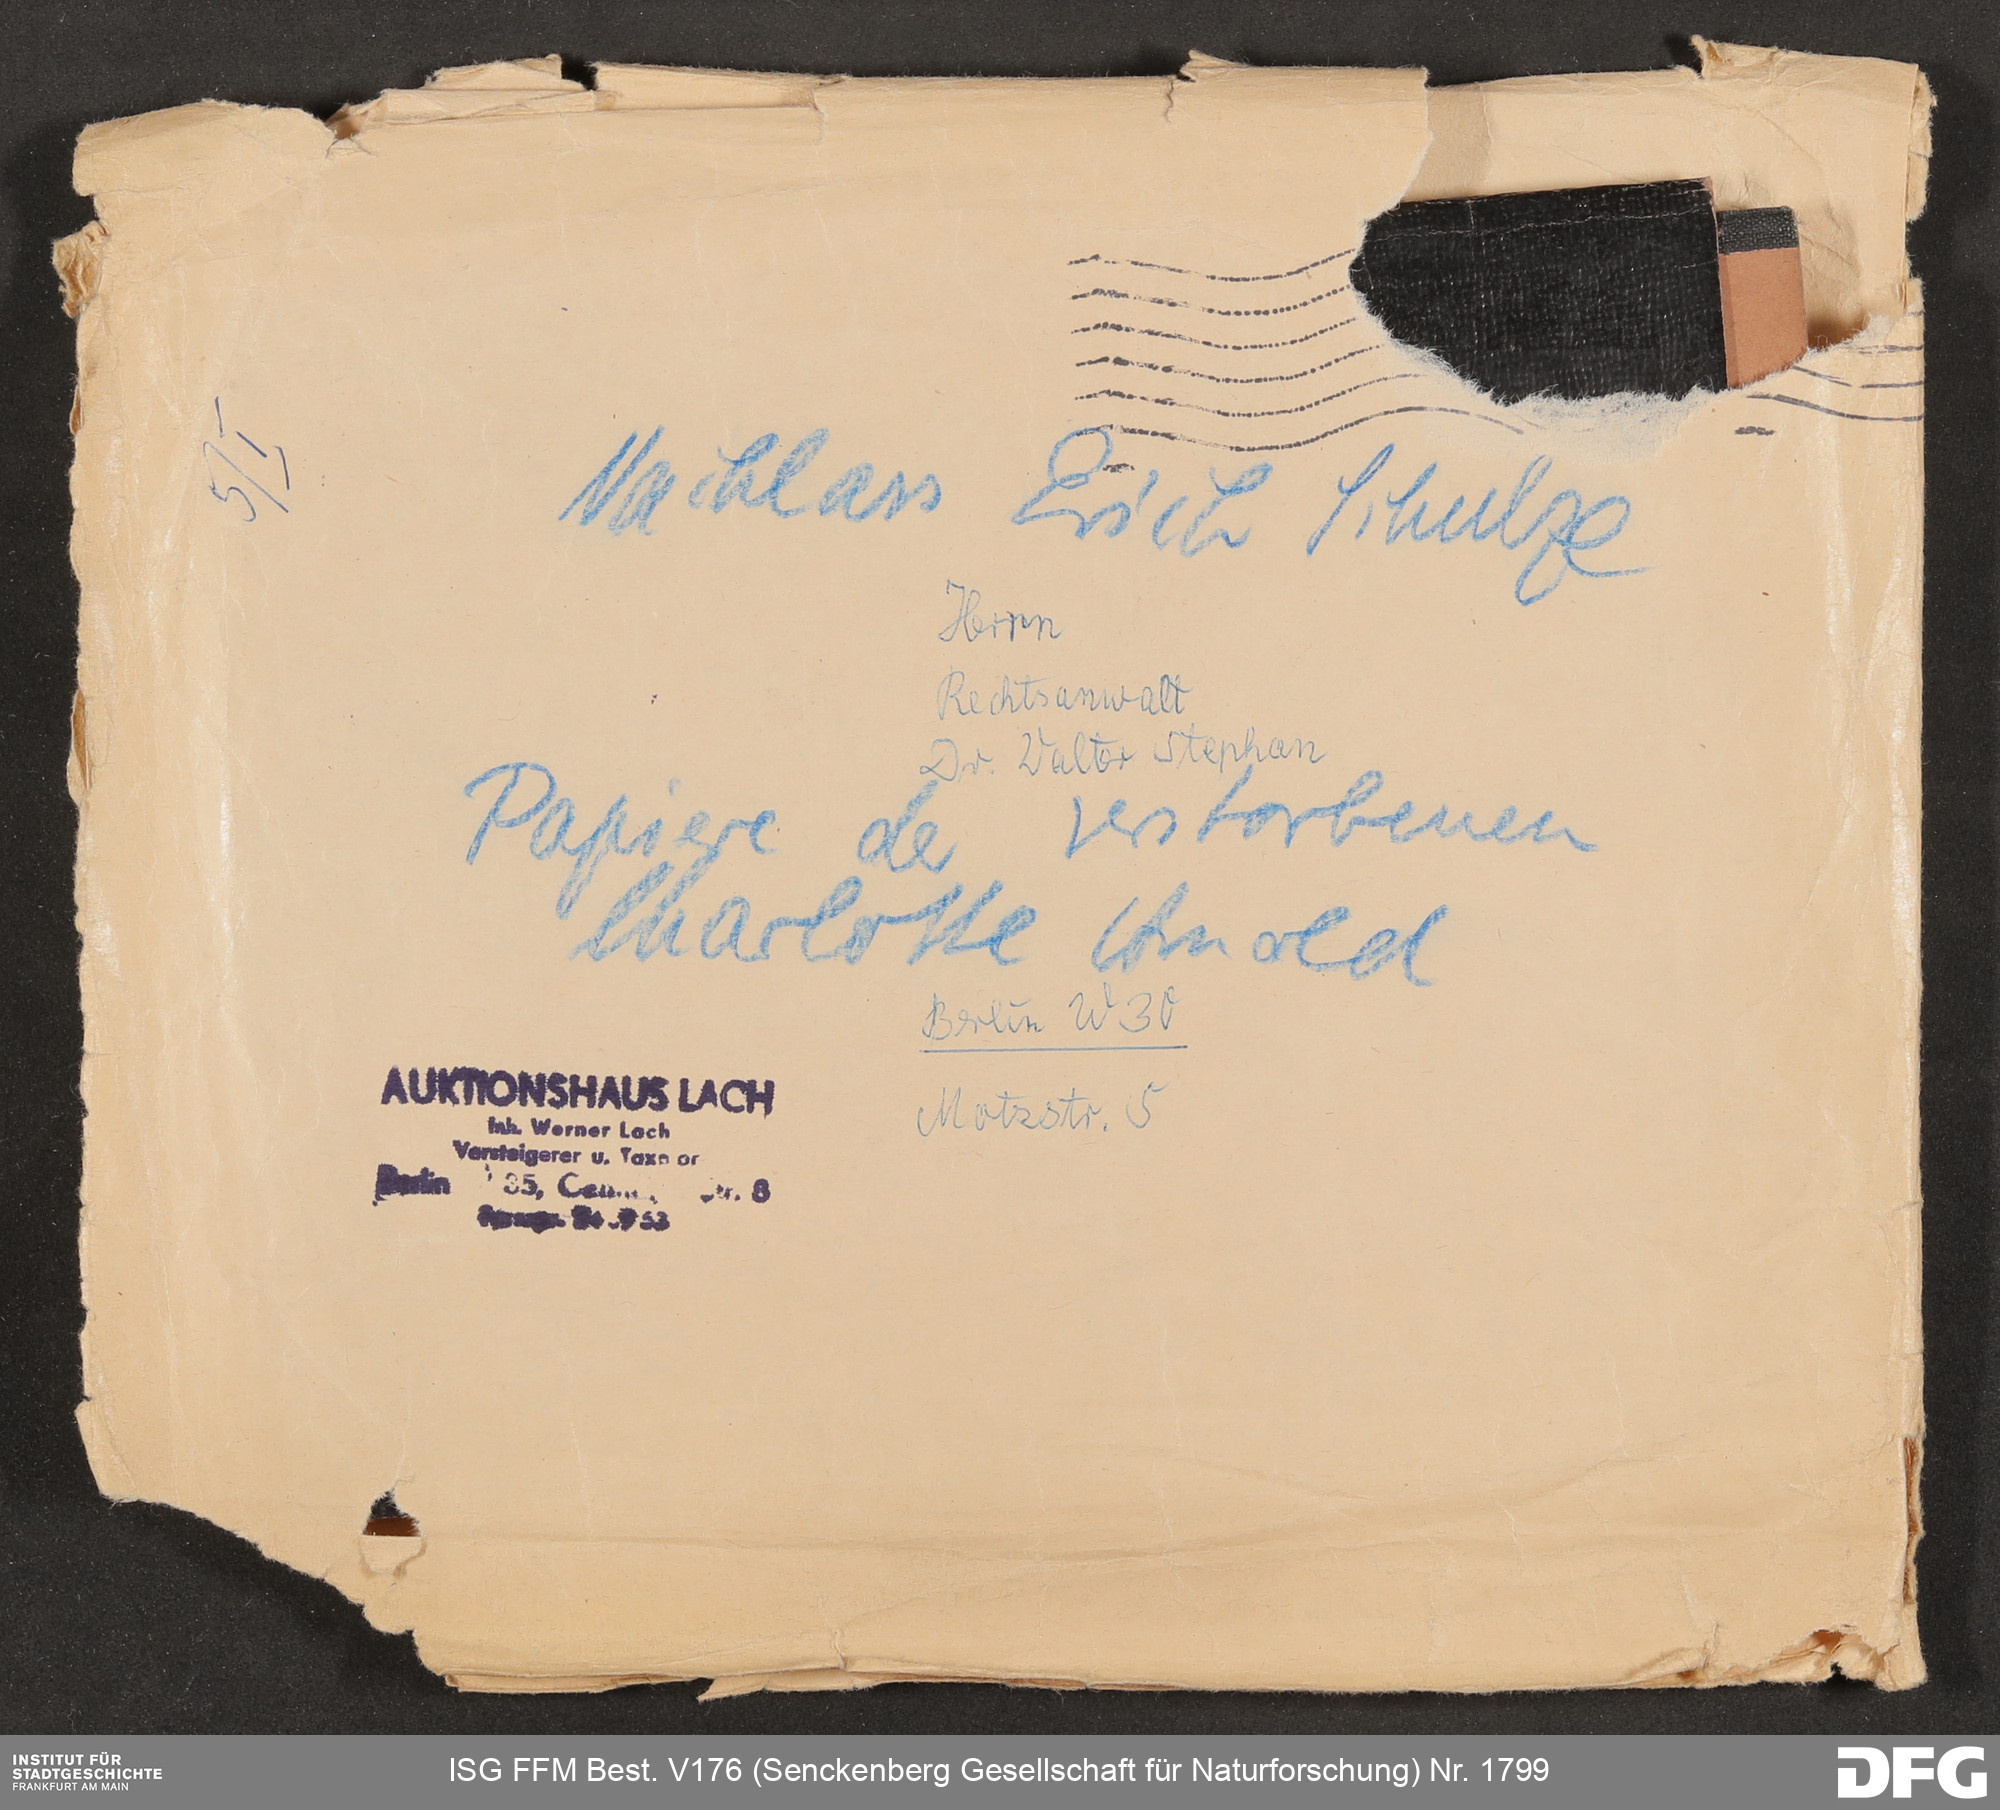 5/I
Nachlass Erich Schulze
Herrn
Rechtsanwalt
Dr. Walter Stephan
Papiere der verstorbenen
Charlotte Arnold
Berlin W 30
Motzstr. 5
AUKTIONSHAUS LACH
Inh. Werner Lach
Versteigerer u. Taxator
Berlin 35, Str. 8
INSTITUT FÜR
STADTGESCHICHTE
FRANKFURT AM MAIN
ISG FFM Best. V176 (Senckenberg Gesellschaft für Naturforschung) Nr. 1799
DFG